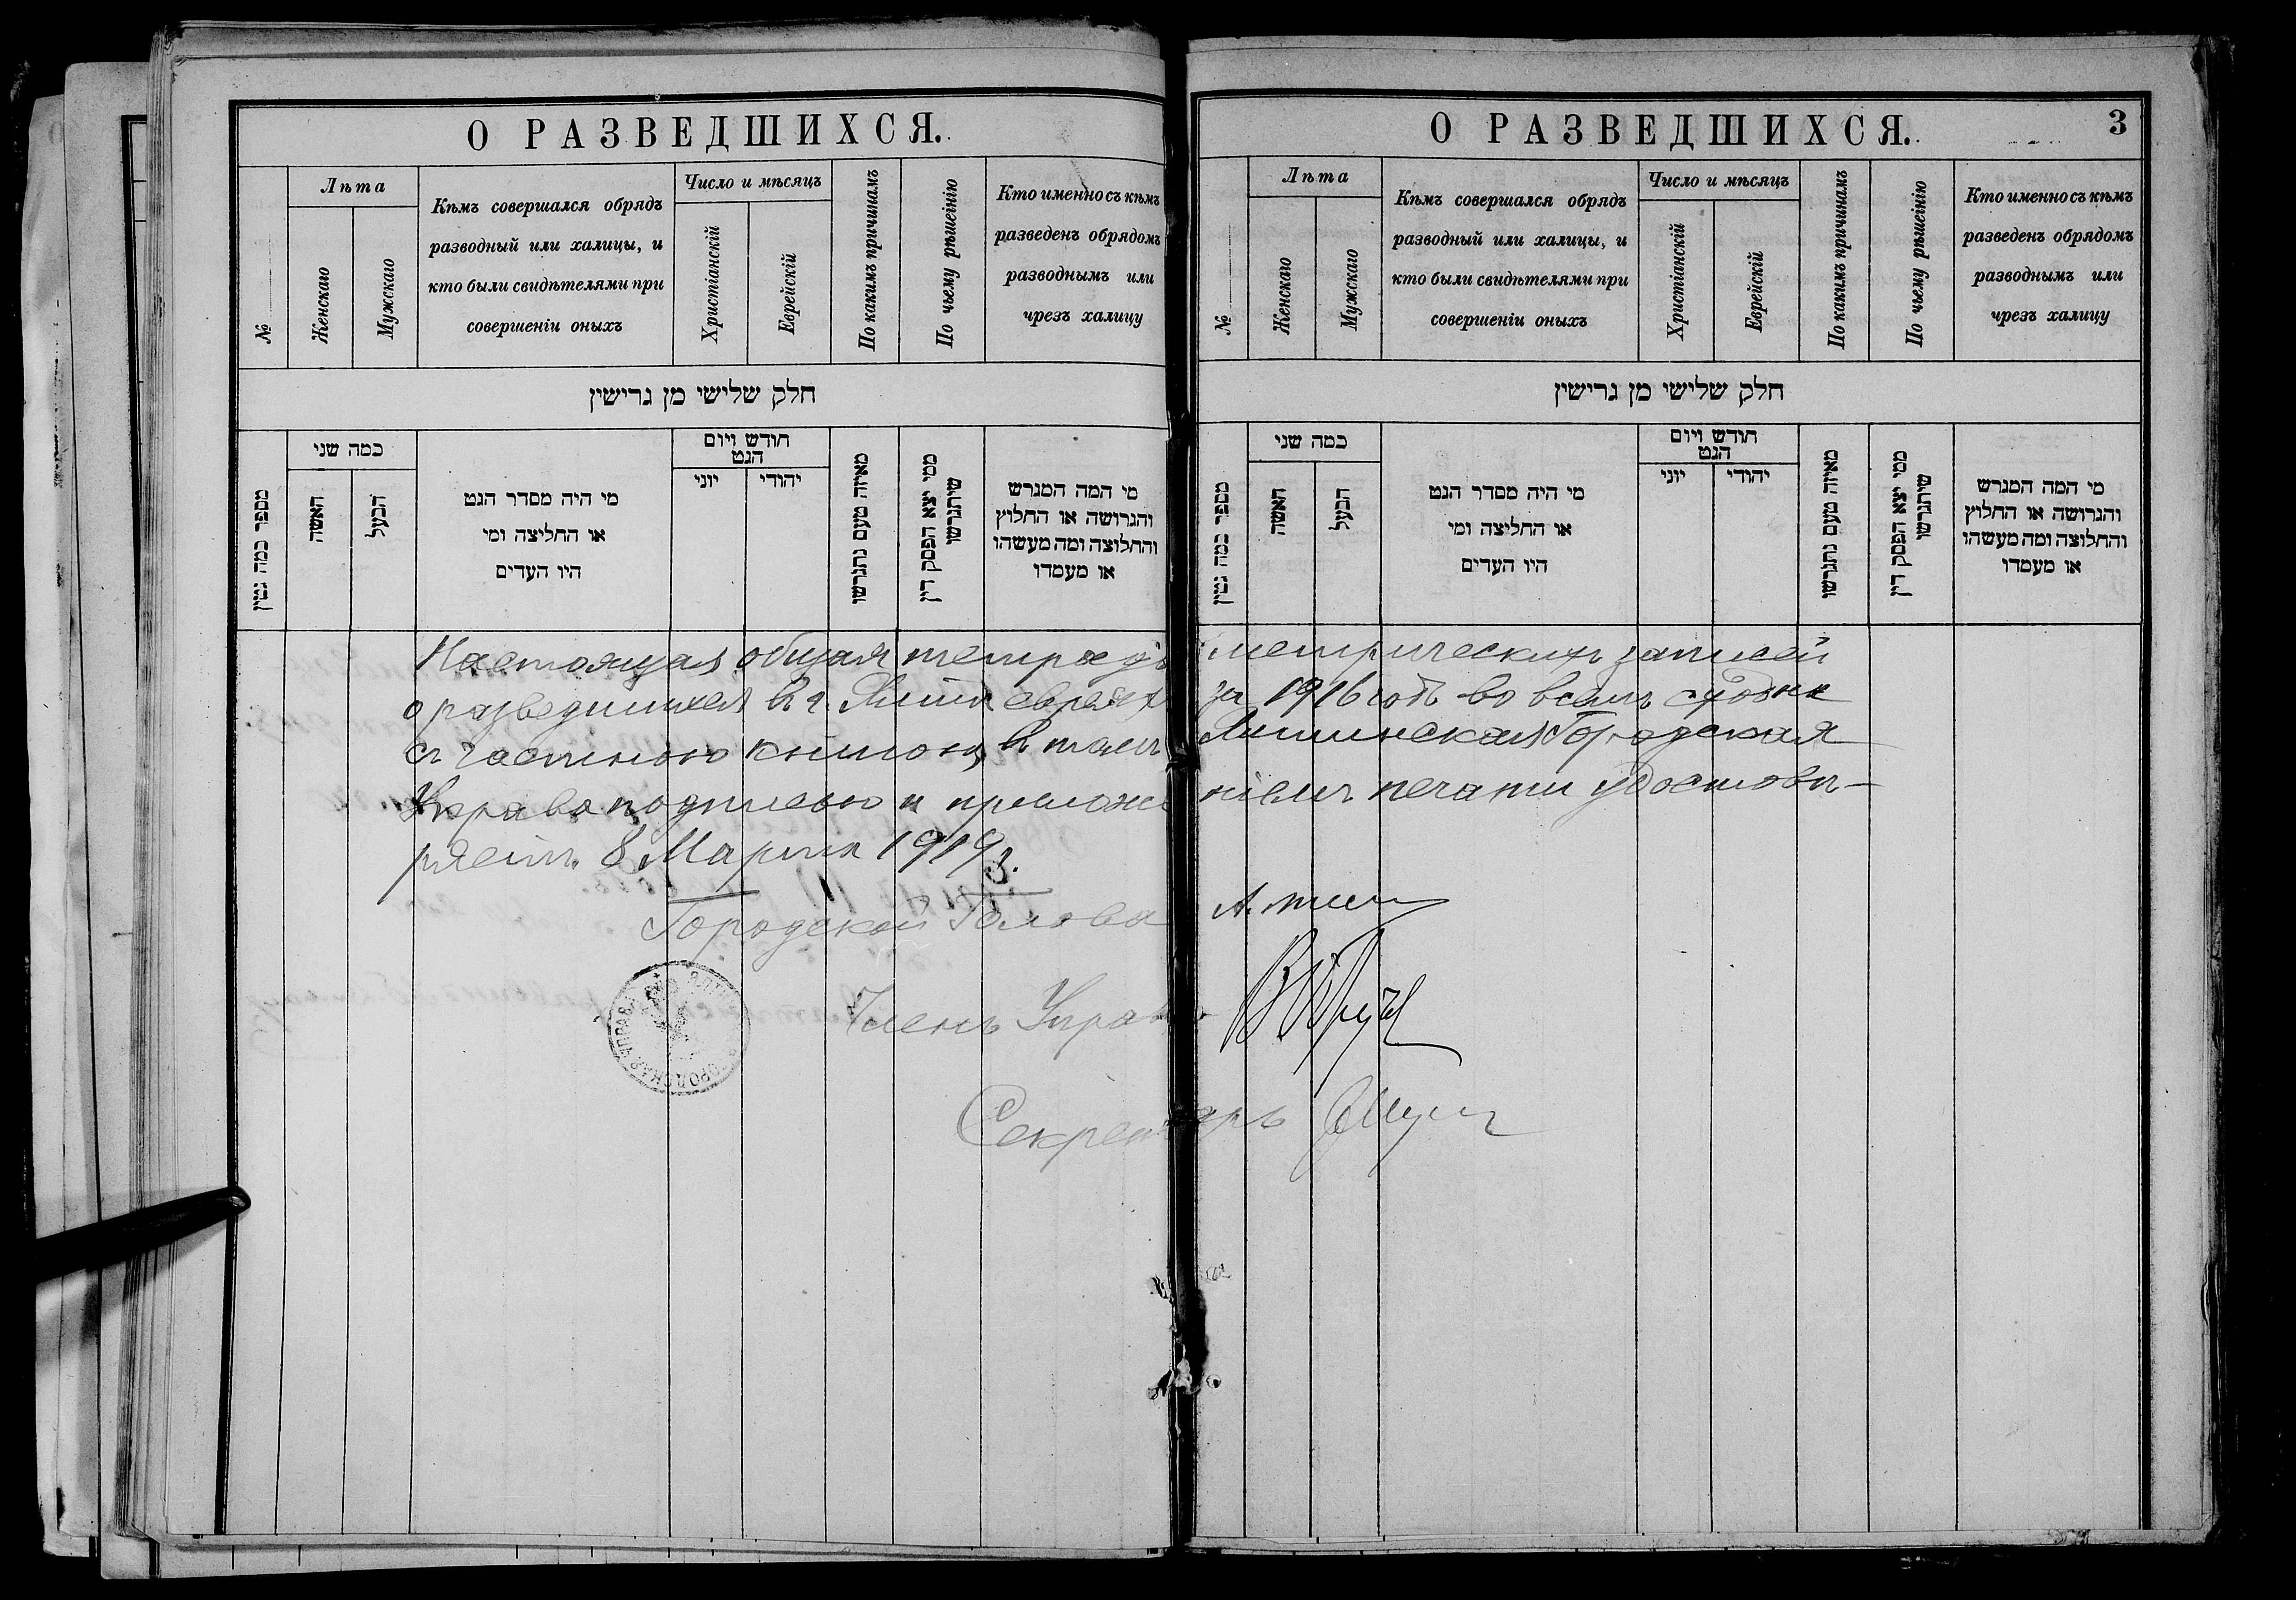 О РАЗВЕДШИХСЯ.
№
Лѣта
Женскаго
Мужскаго
Кѣмъ совершался обрядъ
разводный или халицы, и
кто были свидѣтелями при
совершеніи оныхъ
Число и мѣсяцъ
Христіанскій
Еврейскій
По какимъ причинамъ
По чьему рѣшенію
Кто именно съ кѣмъ
разведенъ обрядомъ
разводнымъ или
чрезъ халицу
חלק שלישי מן גרישין
מספר כמה גטין
כמה שני
האשה
הבעל
מי היה מסדר הגט
או החליצה ומי
היו העדים
חודש ויום
הגט
יוני
יהודי
מאיזה טעם נתגרשו
ממי יצא הפסק דין
שיתגרשו
מי המה המגרש
והגרושה או החלוץ
והחלוצה ומה מעשהו
או מעמדו
О РАЗВЕДШИХСЯ.
3
№
Лѣта
Женскаго
Мужскаго
Кѣмъ совершался обрядъ
разводный или халицы, и
кто были свидѣтелями при
совершеніи оныхъ
Число и мѣсяцъ
Христіанскій
Еврейскій
По какимъ причинамъ
По чьему рѣшенію
Кто именно съ кѣмъ
разведенъ обрядомъ
разводнымъ или
чрезъ халицу
חלק שלישי מן גרישין
מספר כמה גטין
כמה שני
האשה
הבעל
מי היה מסדר הגט
או החליצה ומי
היו העדים
חודש ויום
הגט
יוני
יהודי
מאיזה טעם נתגרשו
ממי יצא הפסק דין
שיתגרשו
מי המה המגרש
והגרושה או החלוץ
והחלוצה ומה מעשהו
או מעמדו
Настоящая общая тетрадь метрическихъ записей
о разведшихся въ г. Ялтѣ евреяхъ за 1916 годъ во всемъ сходна
съ частною книгою, въ томъ Ялтинская Городская
Управа подписью и приложеніемъ печати удостовѣ-
ряетъ. 8 Марта 1919 г.
Городской Голова
Членъ Управы
Секретарь